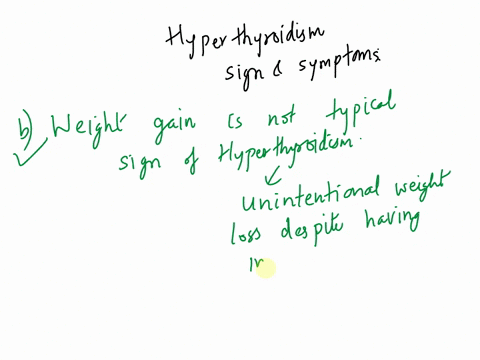 Hyperthyroidism
sign & symptoms.
b) Weight gain is not typical
sign of Hyperthyroidism.
Unintentional weight
loss despite having